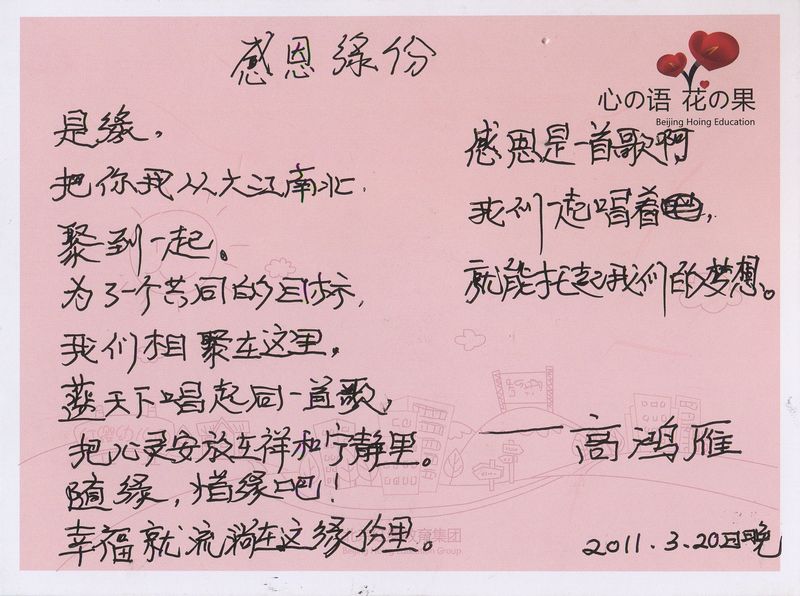 感恩缘份
心の语 花の果
Beijing Hoing Education
是缘，
把你我从大江南北，
聚到一起。
为了一个共同的目标，
我们相聚在这里，
蓝天下唱起同一首歌，
把心灵安放在祥和宁静里。
随缘，惜缘吧！
幸福就流淌在这缘份里。
感恩是一首歌啊
我们一起唱着，
就能托起我们的梦想。
——高鸿雁
2011.3.20日晚
教育集团
Beijing Hoing Education Group